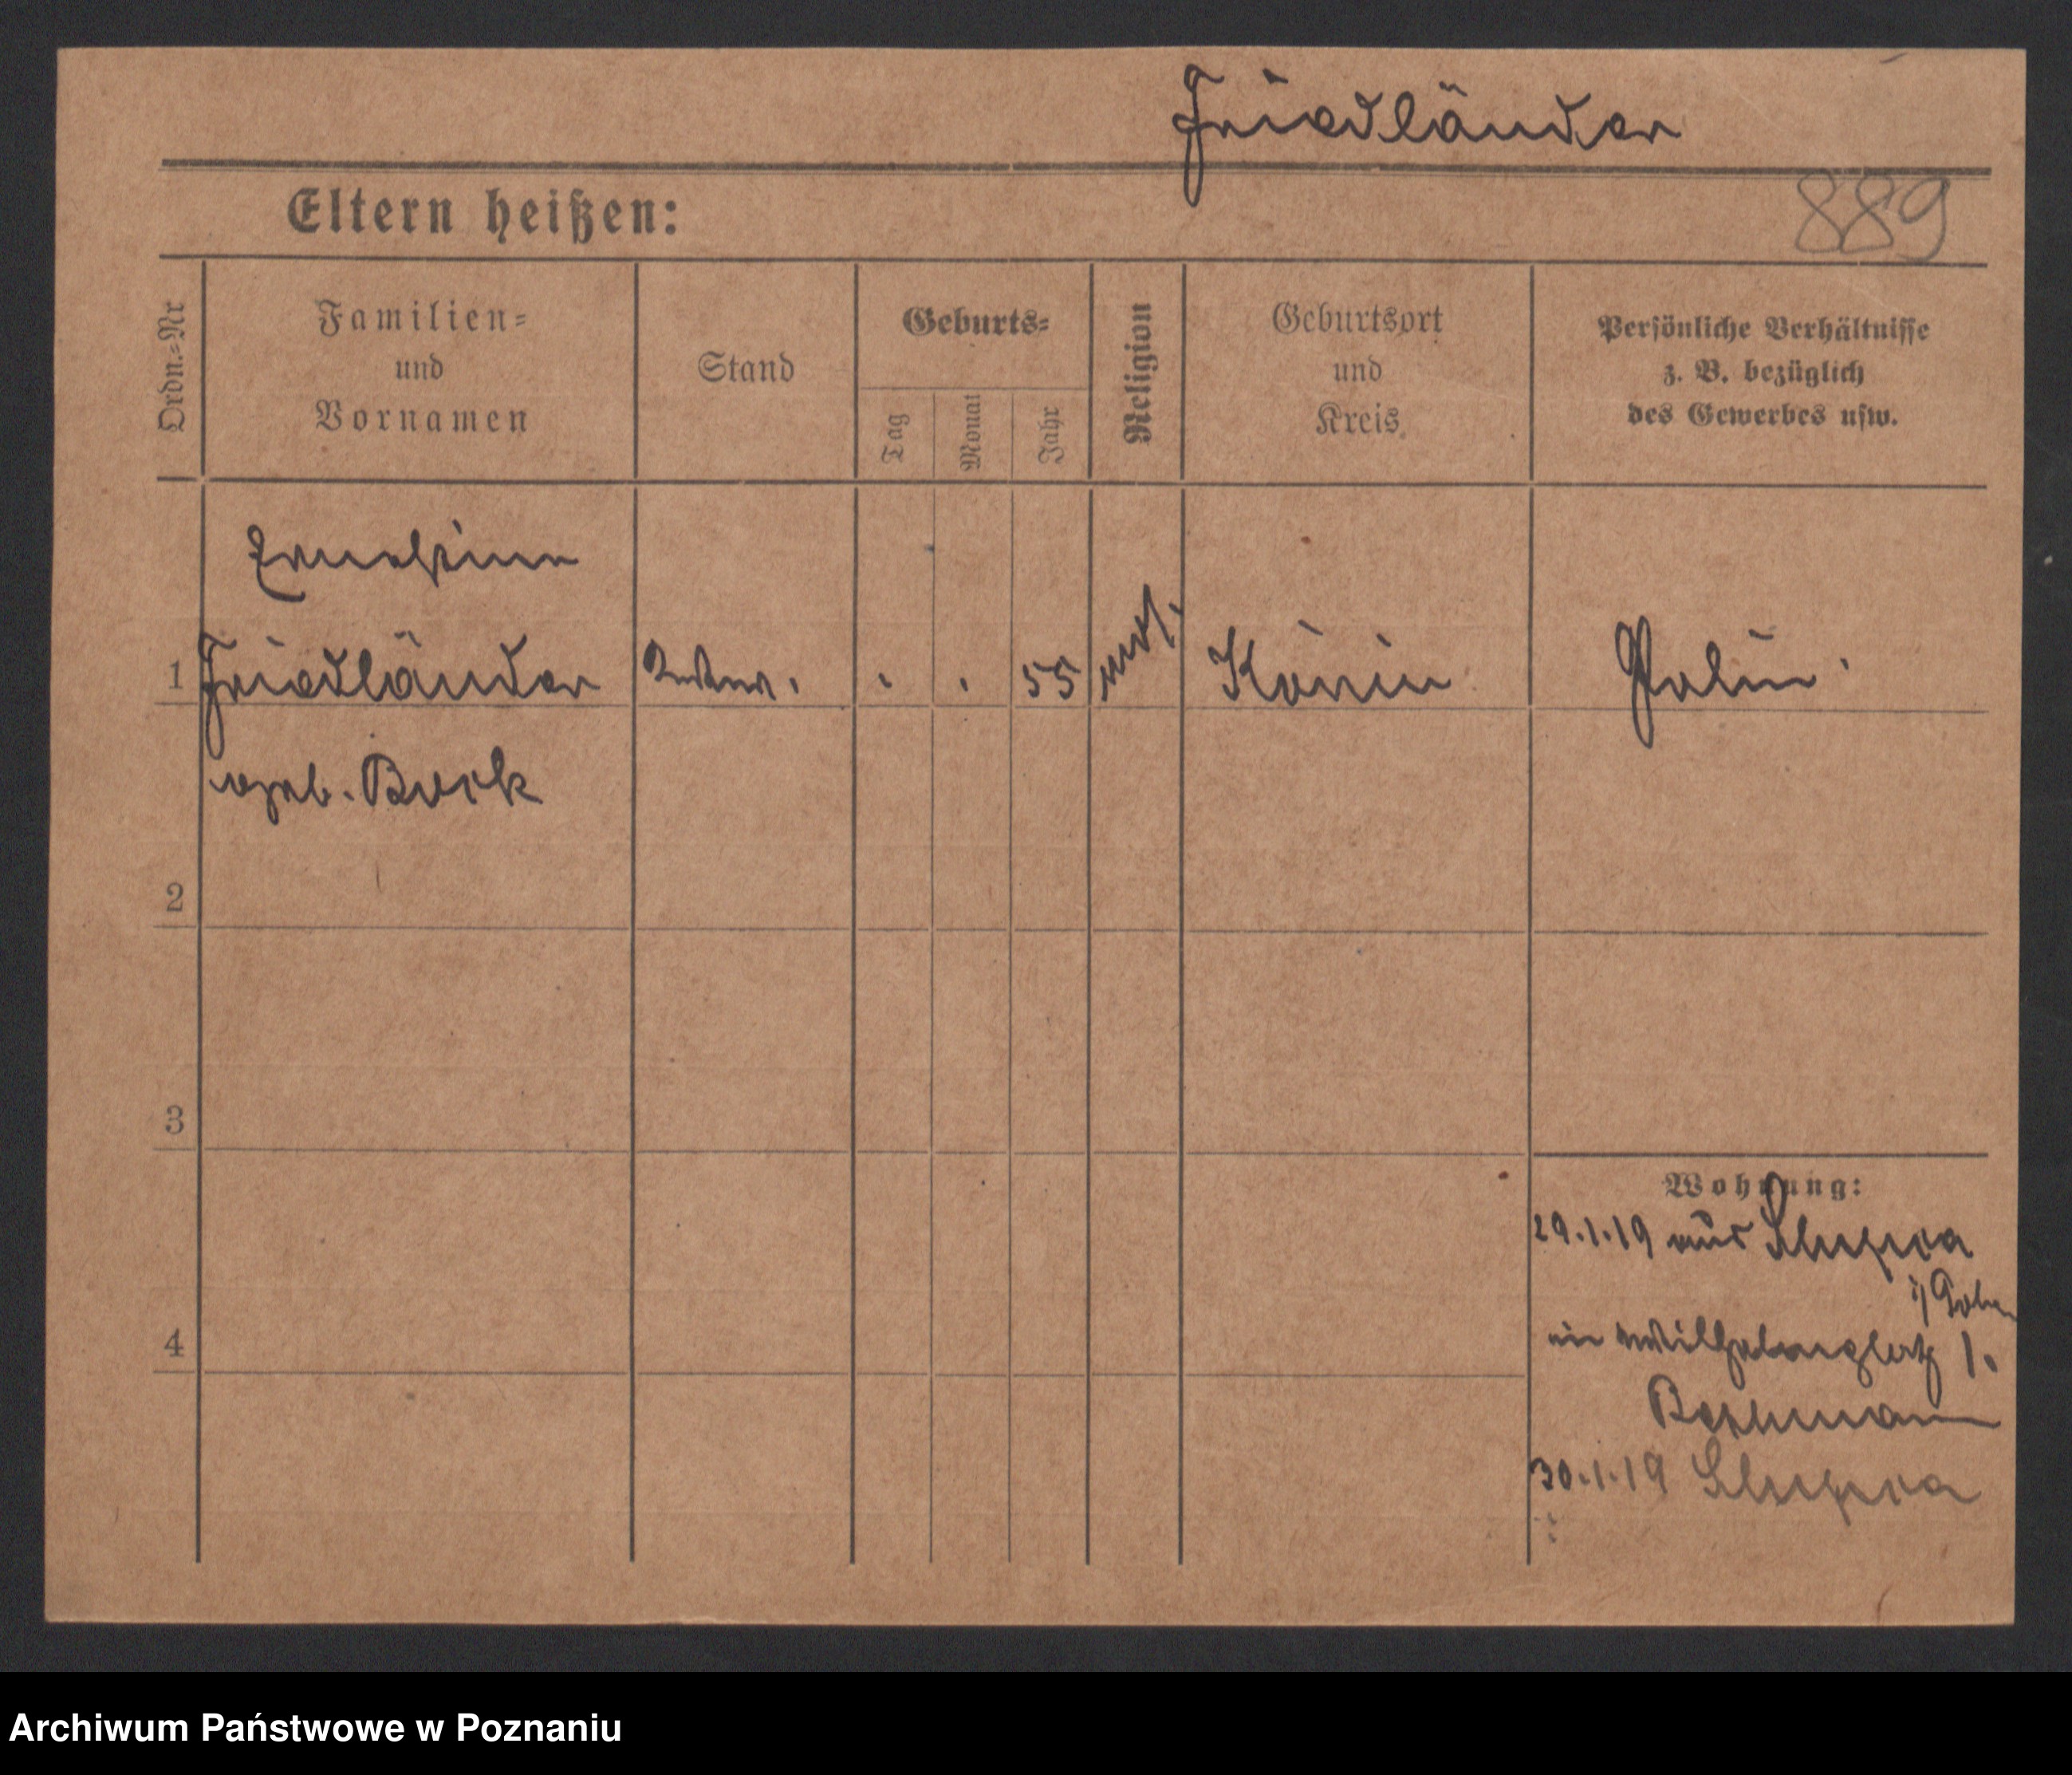 Friedländer
889
Eltern heißen:
Ordn.=Nr
Familien=
und
Vornamen
Stand
Geburts=
Tag
Monat
Jahr
Religion
Geburtsort
und
Kreis
Persönliche Verhältnisse
z. B. bezüglich
des Gewerbes usw.
Ernestine
1 Friedländer . . 55 mos. Konin Polin.
geb. Bock
2
3
Wohnung:
29.1.19 aus Slupca
i/ Polen
4
in Wilhelmplatz 1.
30.1.19 Slupca
Archiwum Państwowe w Poznaniu